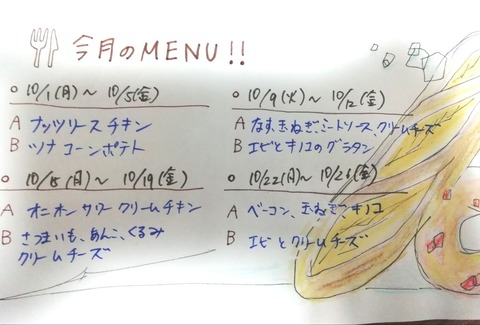 今月のMENU!!
10/1(月)～ 10/5(金)
A ナッツリースチキン
B ツナコーンポテト
10/9(火)～ 10/12(金)
A なす、玉ねぎ、ミートソース、クリームチーズ
B エビとキノコのグラタン
10/15(月)～ 10/19(金)
A オニオンサワークリームチキン
B さつまいも、あんこ、くるみ
クリームチーズ
10/22(月)～ 10/26(金)
A ベーコン、玉ねぎ、キノコ
B エビとクリームチーズ